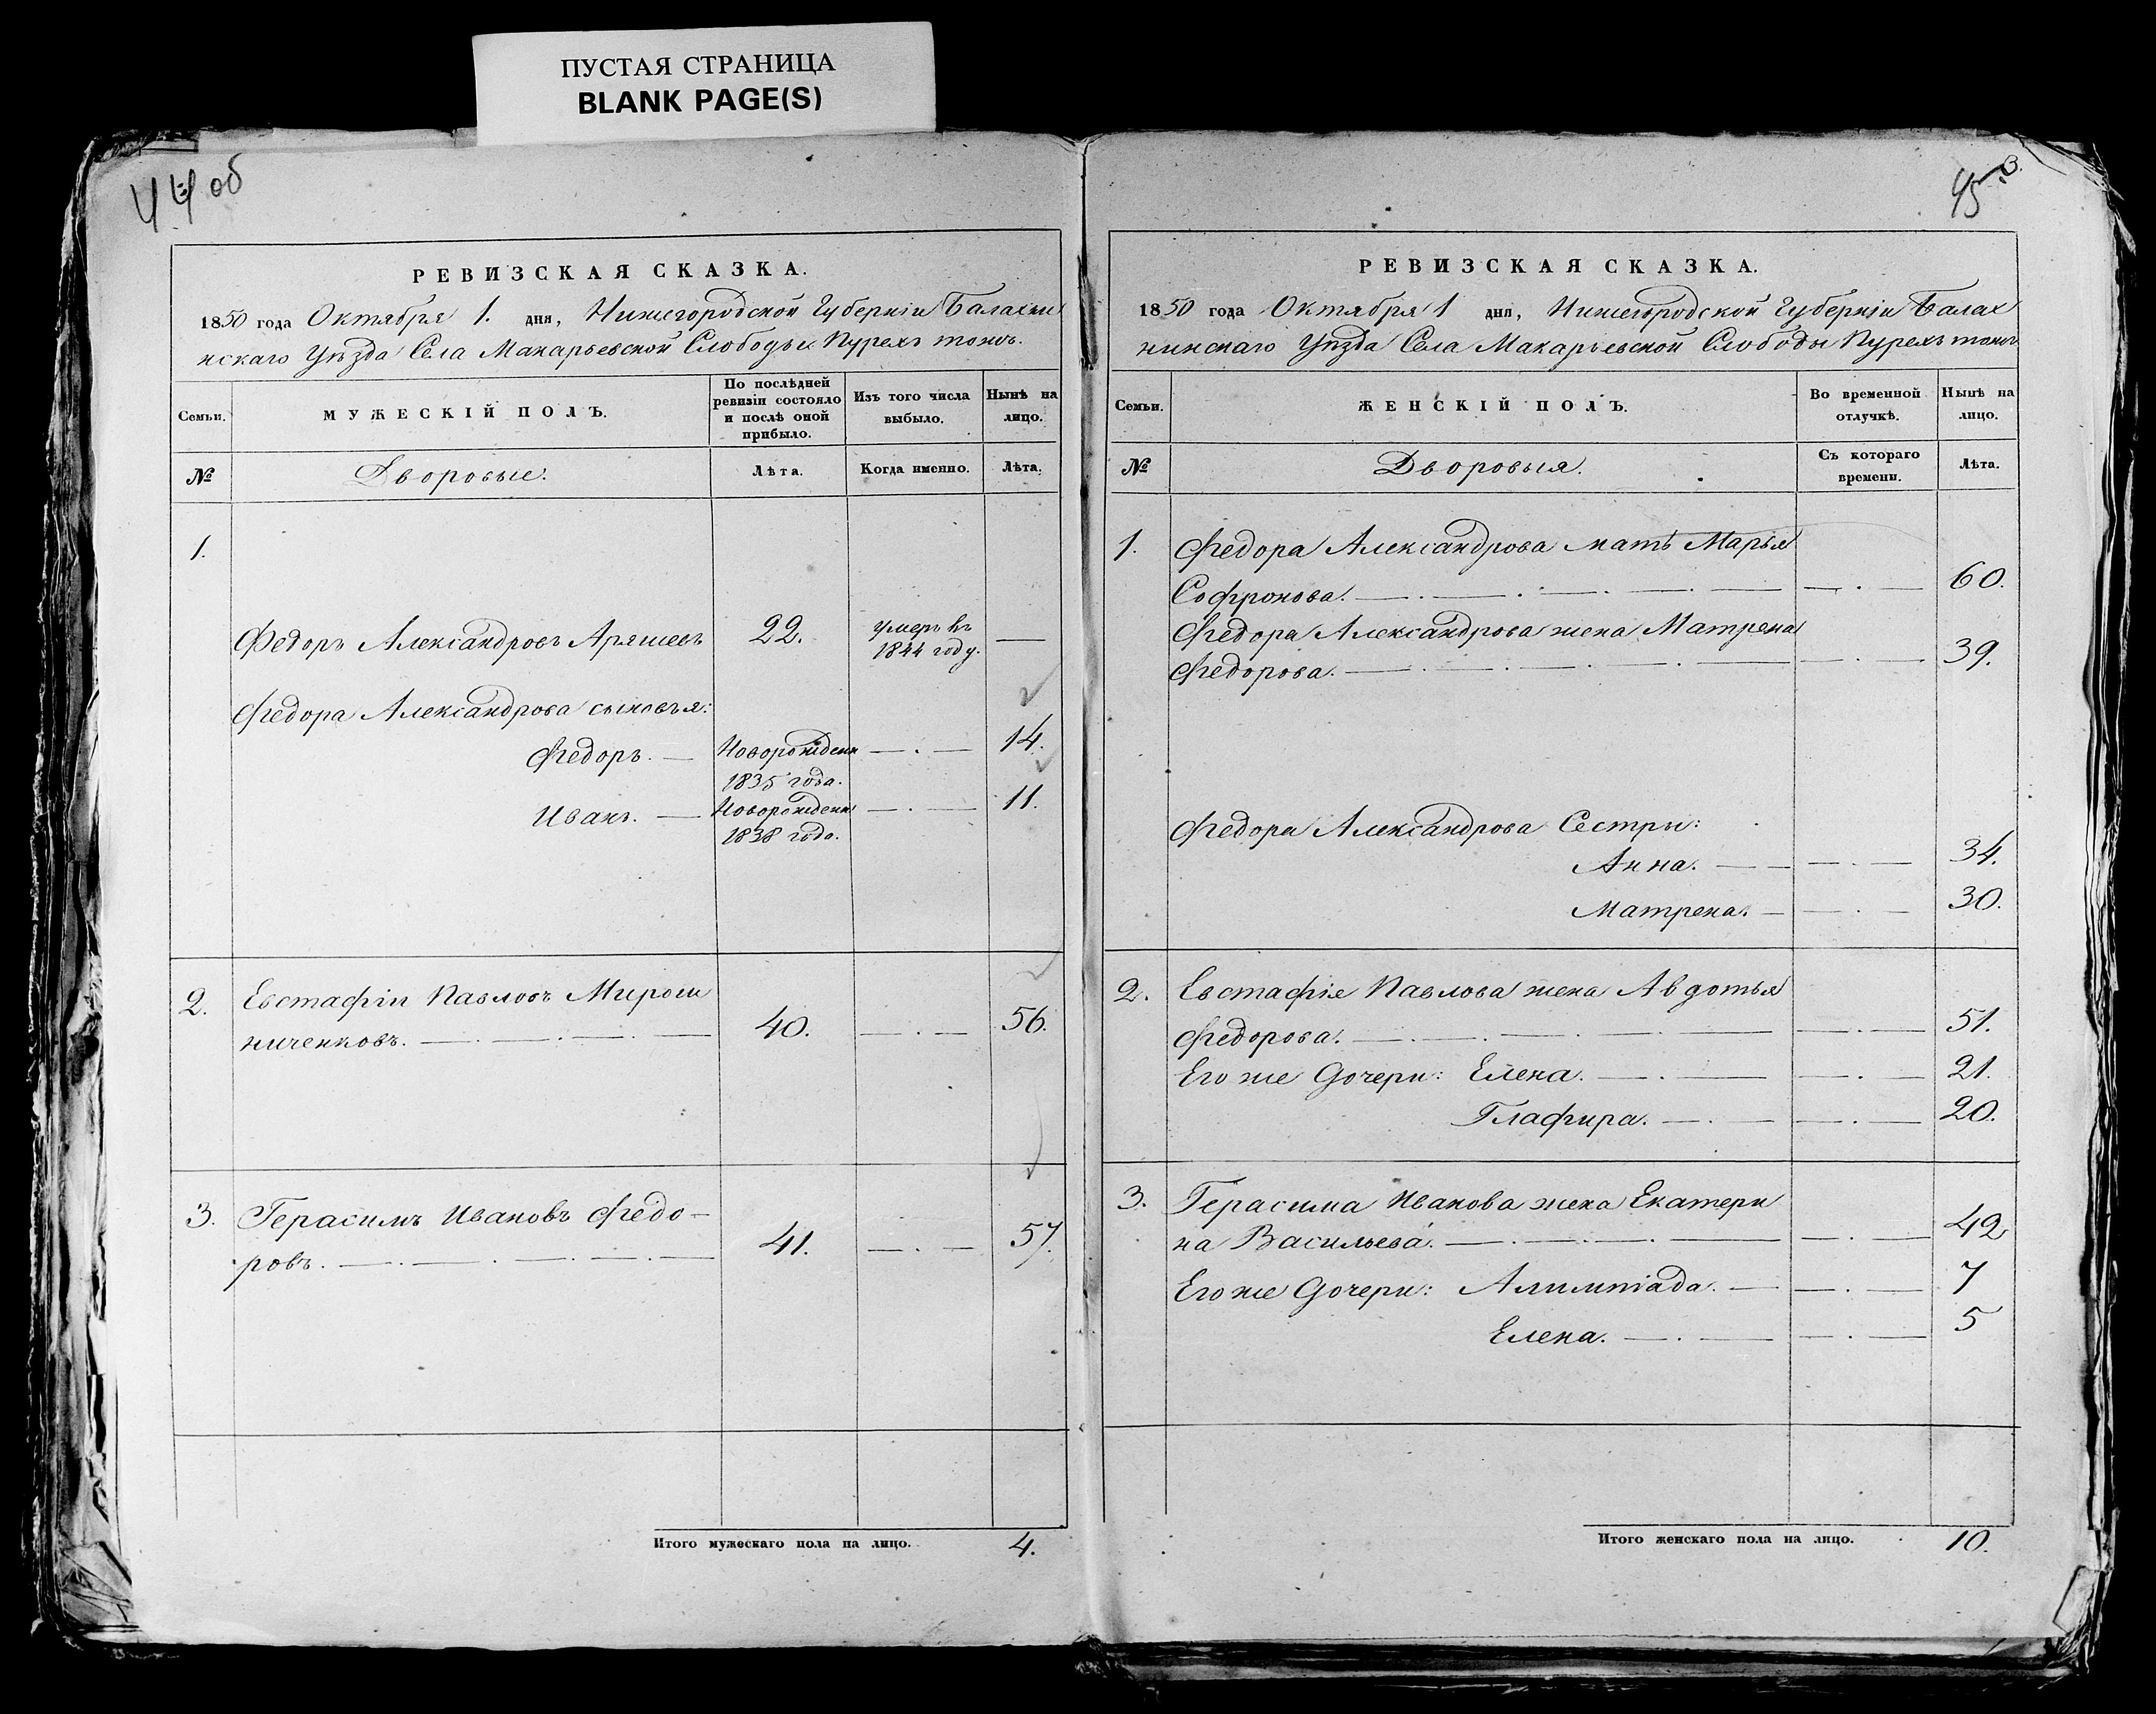 ПУСТАЯ СТРАНИЦА
BLANK PAGE(S)
44 об
РЕВИЗСКАЯ СКАЗКА.
1850 года Октября 1. дня, Нижегородской Губерніи Балахни
нскаго Уѣзда Села Макарьевской Слободы Пурехъ тожъ.
Семьи.
МУЖЕСКІЙ ПОЛЪ.
По послѣдней ревизіи состояло и послѣ оной прибыло.
Изъ того числа выбыло.
Нынѣ на лицо.
№
Дворовые.
Лѣта.
Когда именно.
Лѣта.
1.
Федоръ Александровъ 22. умеръ въ 1844 году. —
Федора Александрова сыновья:
Федоръ. — Новорожденн 1835 года. — . — 14.
Иванъ. — Новорожденн 1838 года. — . — 11.
2. Евстафіи Павловъ Мирош
ниченковъ. — 40. — . — 56.
3. Герасимъ Ивановъ Федо-
ровъ. — 41. — . — 57.
Итого мужескаго пола на лицо. 4.
45
3.
РЕВИЗСКАЯ СКАЗКА.
1850 года Октября 1 дня, Нижегородской Губерніи Балах
нинскаго Уѣзда Села Макарьевской Слободы Пурехъ тожъ
Семьи.
ЖЕНСКІЙ ПОЛЪ.
Во временной отлучкѣ.
Нынѣ на лицо.
№
Дворовыя.
Съ котораго времени.
Лѣта.
1. Федора Александрова мать Марья
Софронова. — . — 60.
Федора Александрова жена Матрена
Федорова. — . — 39.
Федора Александрова Сестры:
Анна. — . — 34.
Матрена. — . — 30.
2. Евстафіе Павлова жена Авдотья
Федорова. — . — 51.
Его же Дочери: Елена. — . — 21.
Глафира. — . — 20.
3. Герасима Иванова жена Екатери
на Васильева. — . — 42
Его же Дочери: Алимпіада. — . — 7
Елена. — . — 5
Итого женскаго пола на лицо. 10.